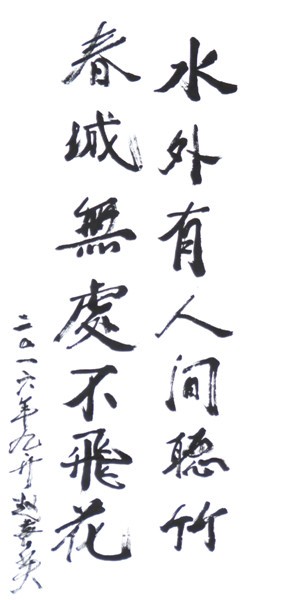 水外有人间聽竹
春城無處不飛花
二〇一六年九月